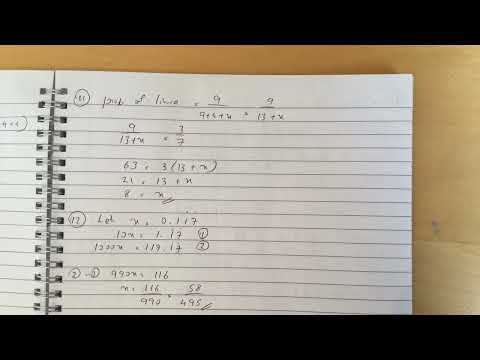 11) prob of lime = 9/(9+4+x) = 9/(13+x)
9/(13+x) = 3/7
63 = 3(13+x)
21 = 13 + x
8 = x
12) Let x = 0.1i7̇
10x = 1.17 ①
1000x = 117.17 ②
② - ① 990x = 116
x = 116/990 = 58/495